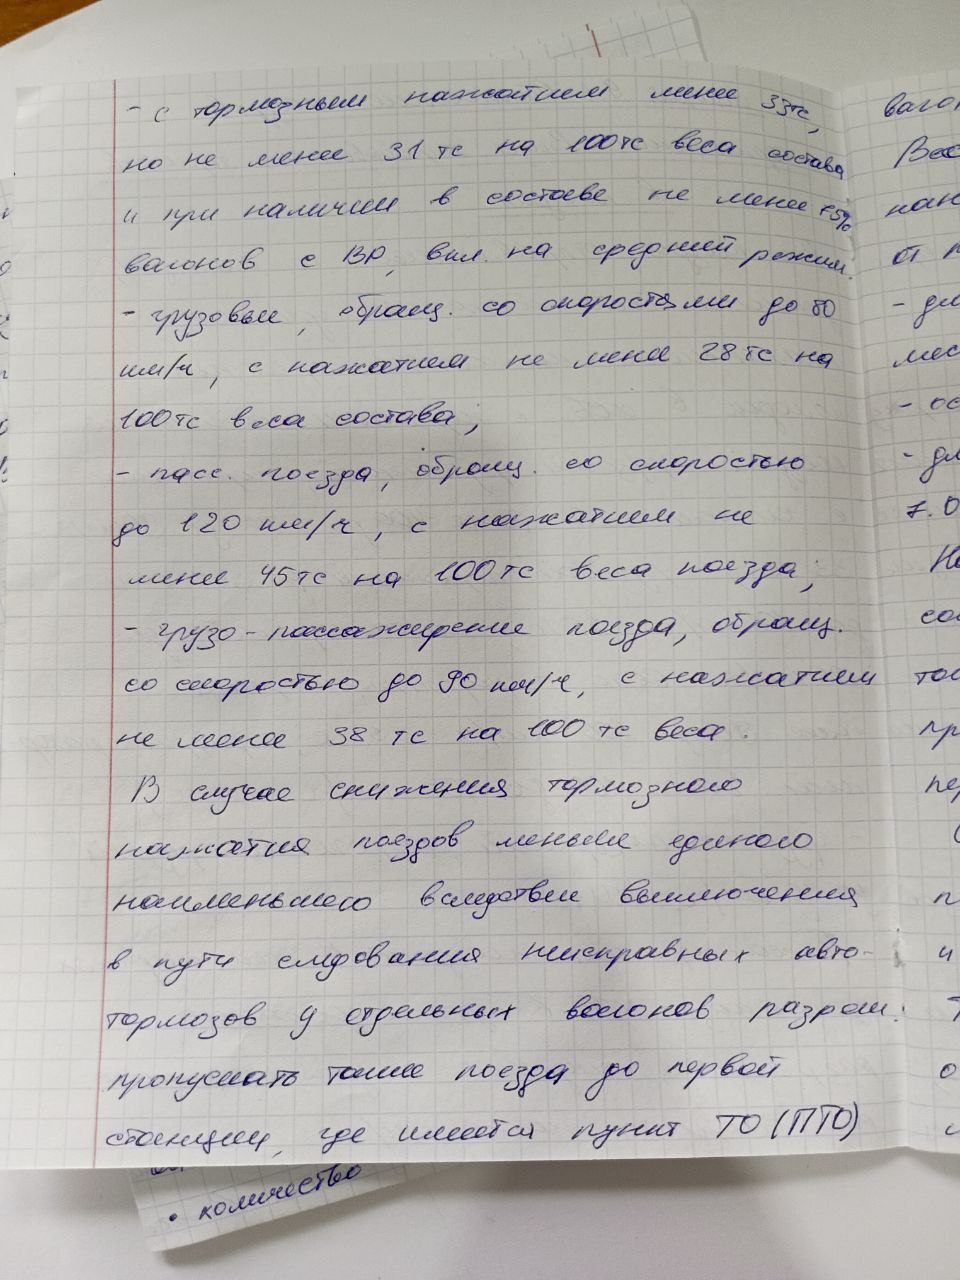 - с тормозным нажатием менее 33тс,
но не менее 31 тс на 100тс веса состава
и при наличии в составе не менее 75%
вагонов с ВР, вкл. на средний режим.
- грузовые, обращ. со скоростями до 80
км/ч, с нажатием не мене 28 тс на
100тс веса состава;
- пасс. поезда, обращ. со скоростью
до 120 км/ч, с нажатием не
менее 45тс на 100тс веса поезда;
- грузо-пассажирские поезда, обращ.
со скоростью до 90 км/ч, с нажатием
не мене 38 тс на 100 тс веса.
В случае снижения тормозного
нажатия поездов меньше единого
наименьшего вследствие выключения
в пути следования неисправных авто-
тормозов у отдельных вагонов разреш.
пропускать такие поезда до первой
станции, где имеется пункт ТО (ПТО)
• количество
ваго
Вес
от
- дл
мес
- ос
- дл
7. О
На
пр
пер
п
и
о